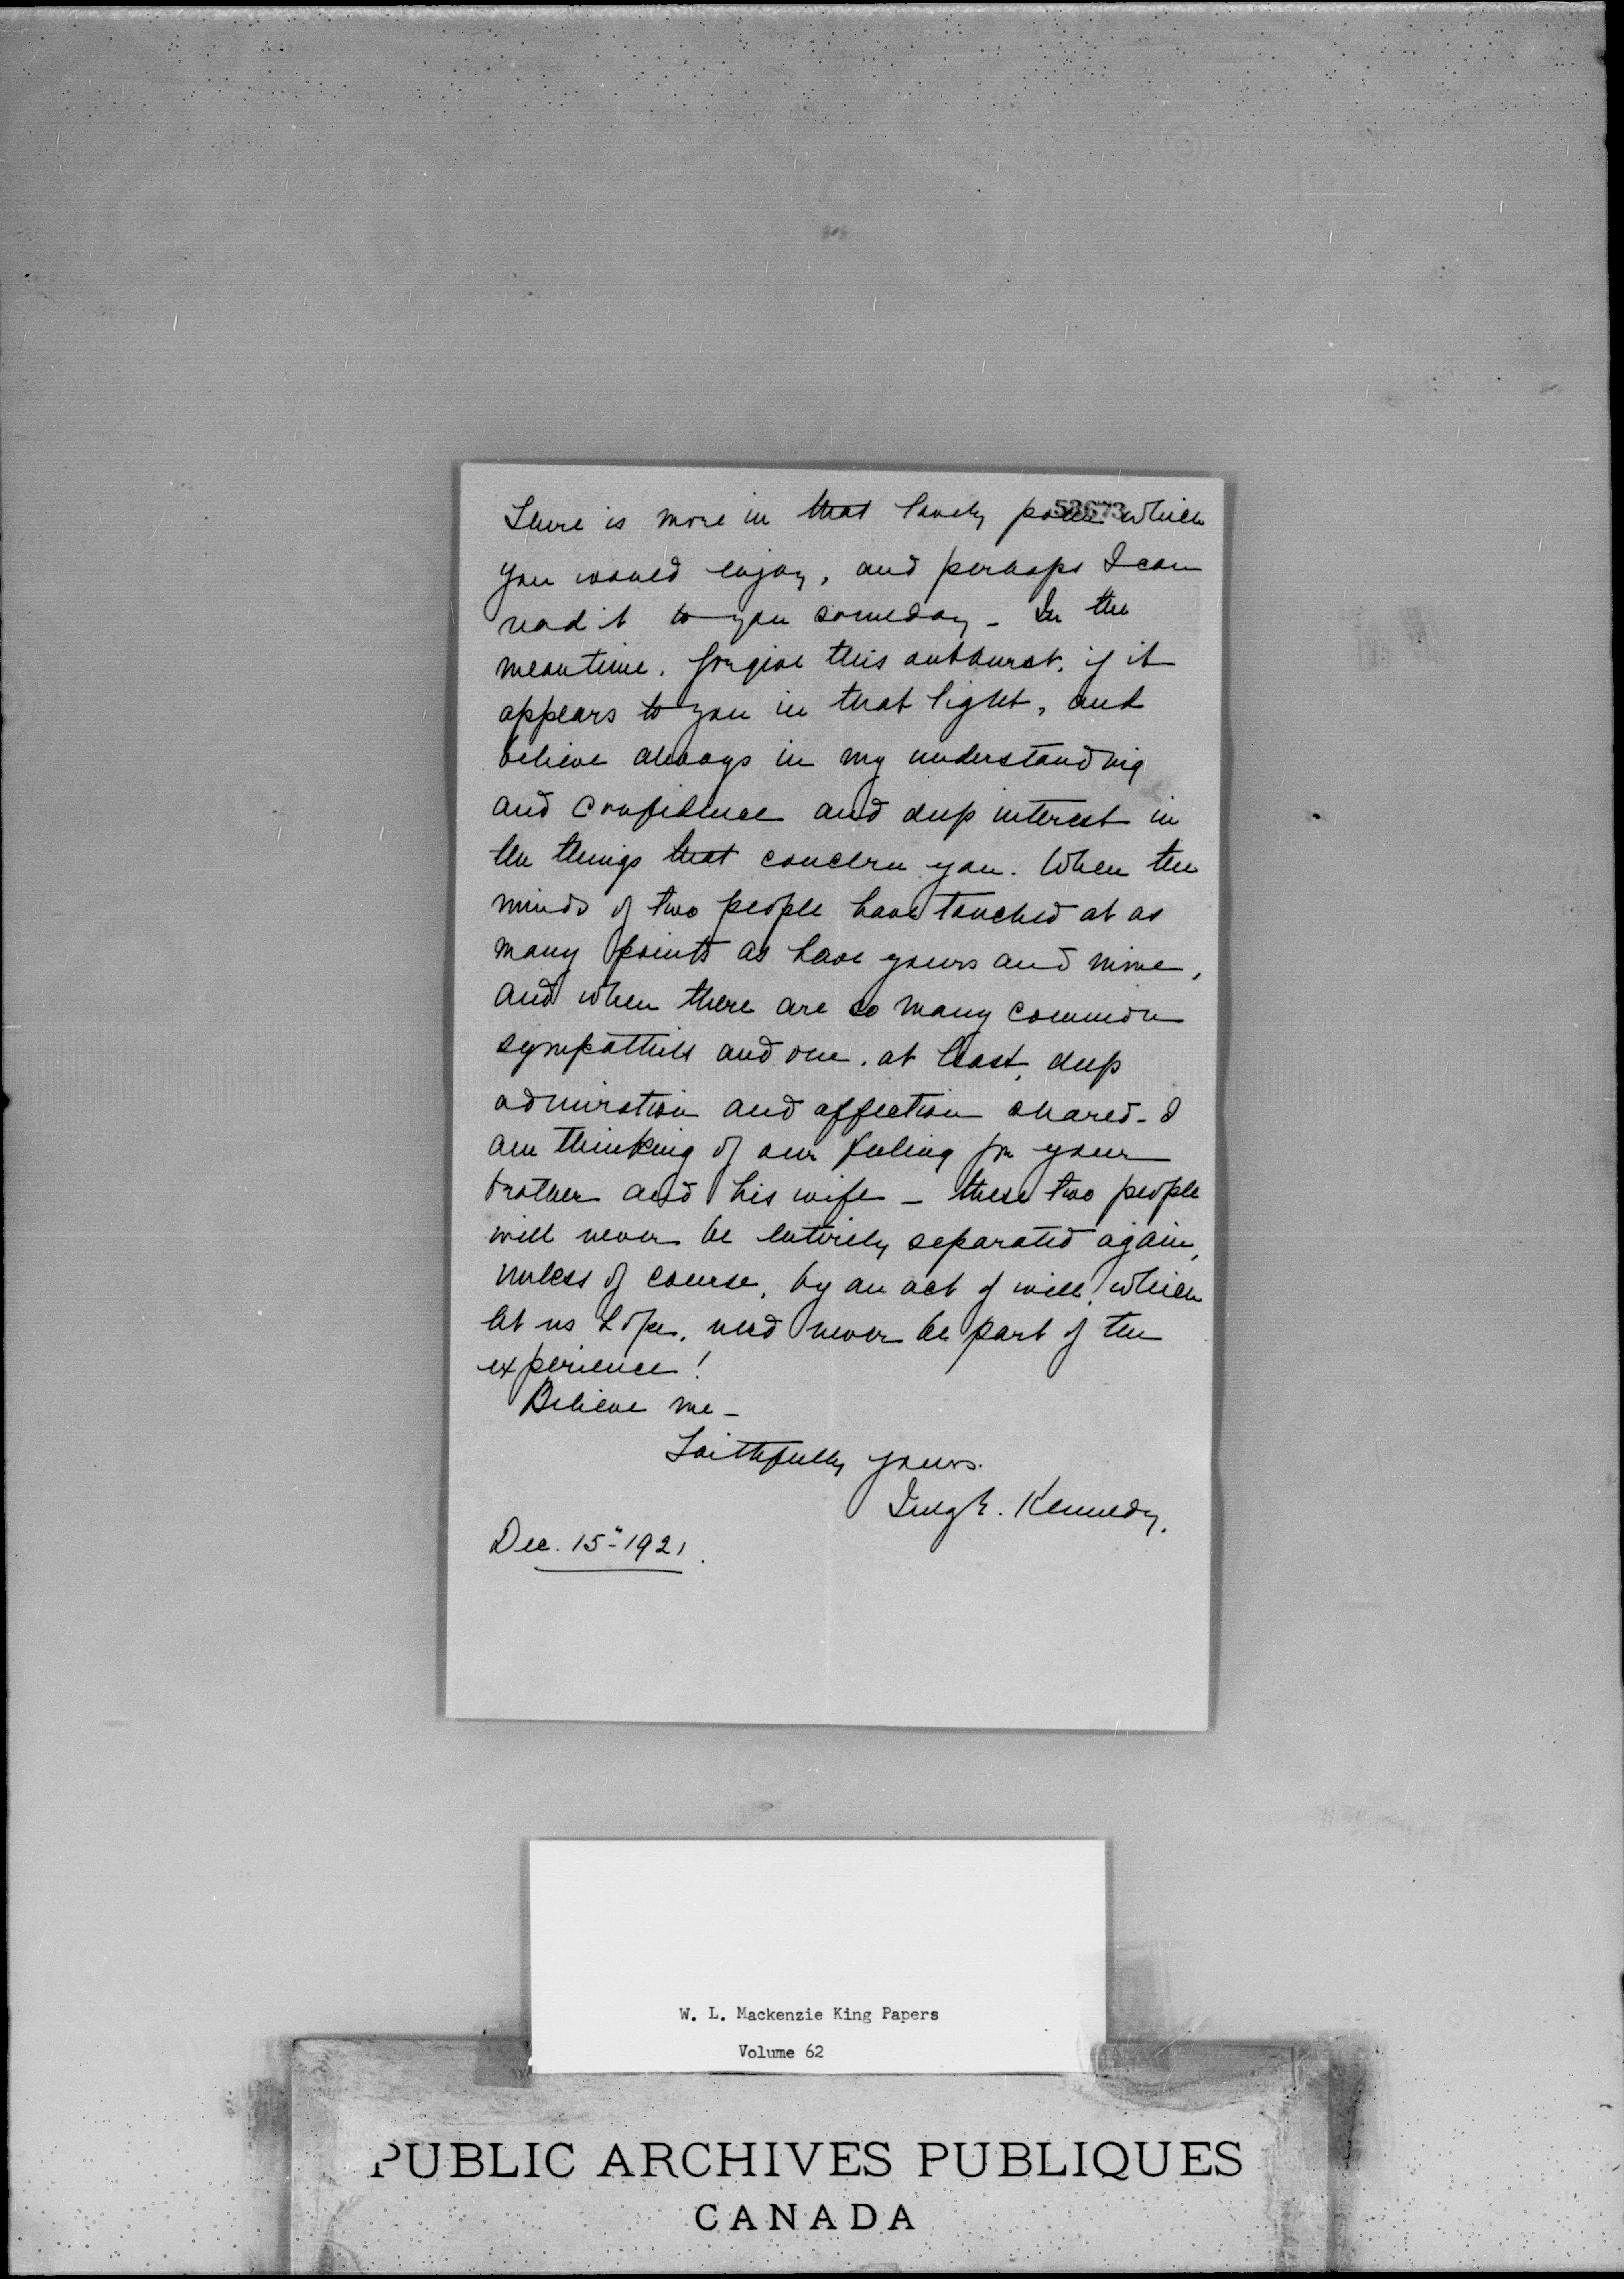 52673
There is more in that lovely poem which
you would enjoy, and perhaps I can
read it to you someday - In the
meantime, forgive this outburst, if it
appears to you in that light, and
believe always in my understanding
and confidence and deep interest in
the things that concern you. When the
minds of two people have touched at as
many points as have yours and mine,
and when there are so many common
sympathies and one, at least, deep
admiration and affection shared - I
am thinking of our feeling for your
brother and his wife - these two people
will never be entirely separated again,
unless of course, by an act of will, which
let us hope, need never be part of the
experience!
Believe me -
Faithfully yours.
Kennedy.
Dec. 15" 1921.
W. L. Mackenzie King Papers
Volume 62
PUBLIC ARCHIVES PUBLIQUES
CANADA